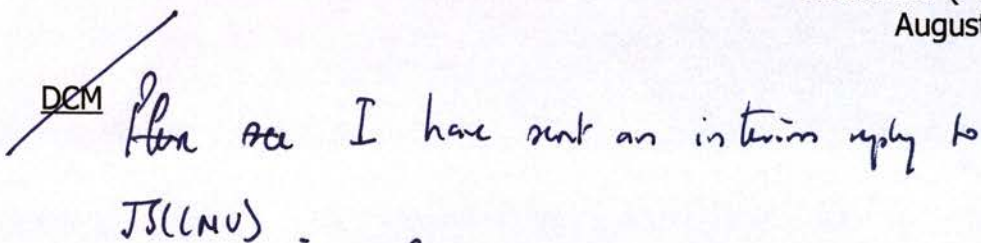 August
DCM
Please see I have sent an interim reply to
JS(CNV)